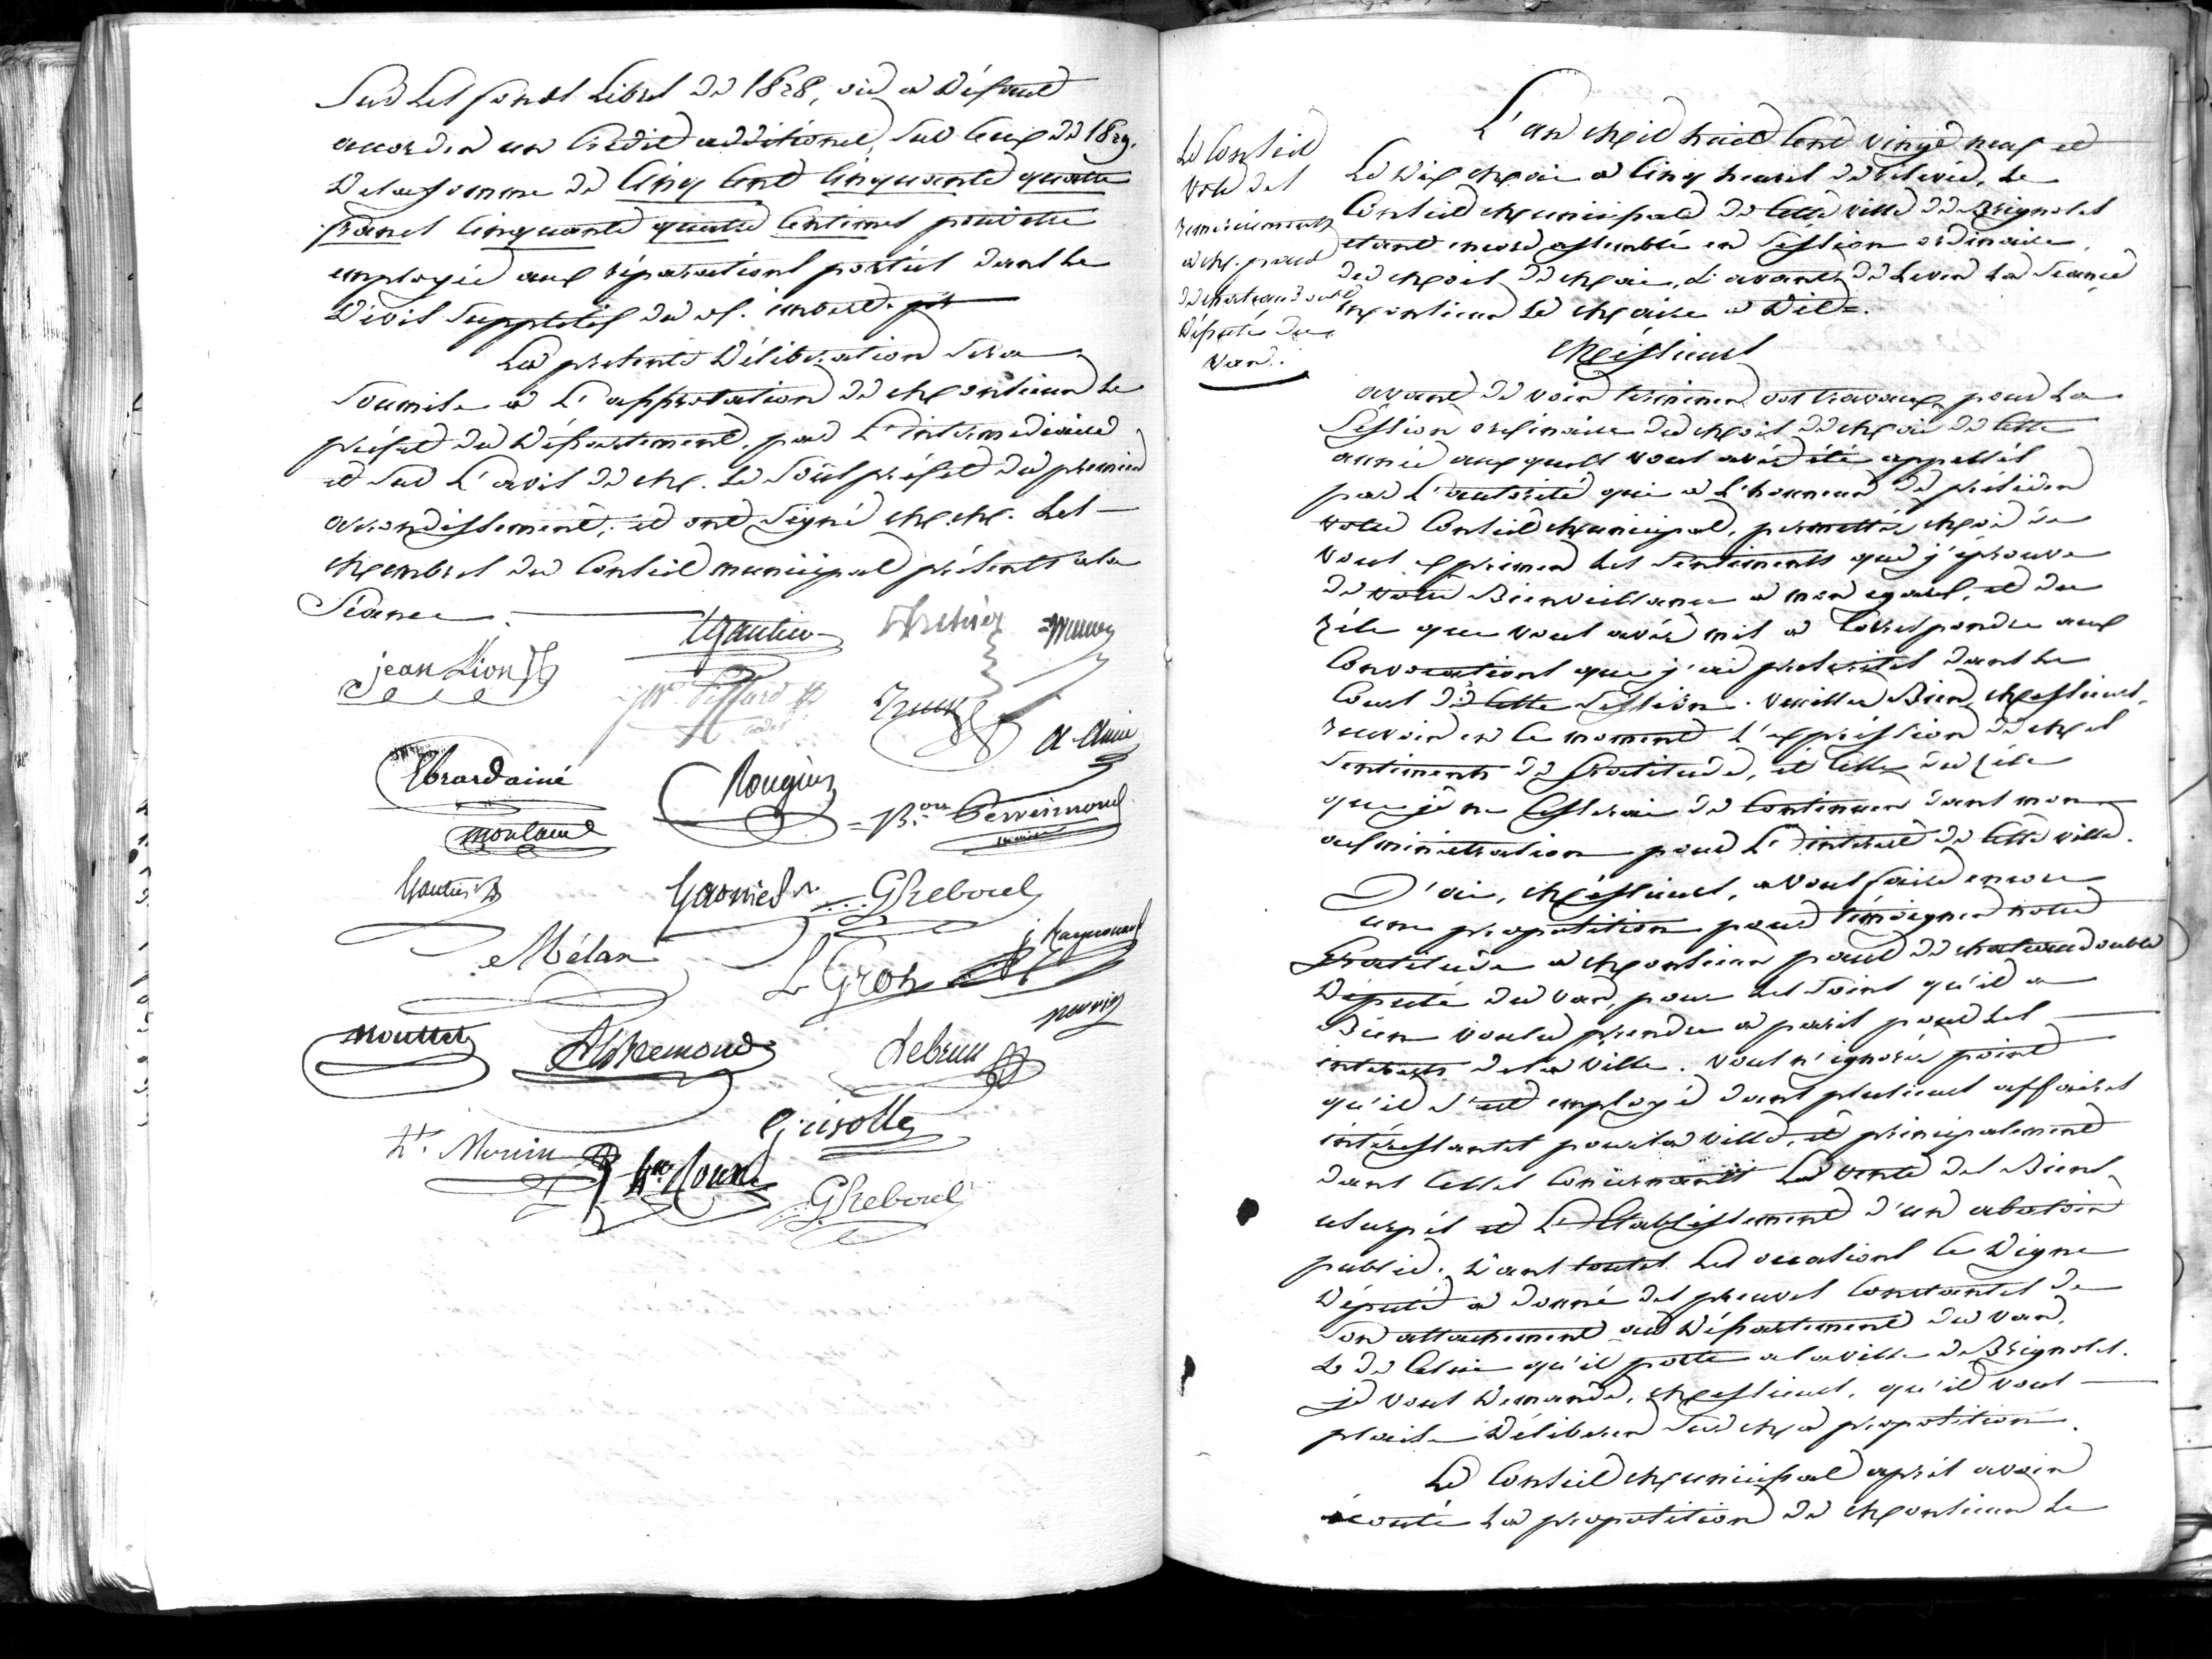 Sur les fonds libres de 1828, où à défaut
accorder un crédit additionel, sur ceux de 1829.
de la somme de cinq cent cinquante quatre
francs cinquante quatre centimes pour être
employée aux réparations portées dans le
devis supplétif du sr.
La présente délibération sera
soumise à l'approbation de Monsieur le
préfet du département, par l'intermédiaire
et sur l'avis de M. le sous préfet du premier
arrondissement; et ont signé M.M. les
Membres du Conseil municipal présents à la
séance.
Gautier
jean Lion
Piffard
A. Aimé
Ebrard ainé
Rougier
Mon
Gautier
Garnier
G Reboul
Mélan
Le Gros
j Raynouard
Mouttet
Remond
Lebrun
Grisolle
hte. Morin
G Reboul
Le Conseil
vote des
remerciements
à M. paul
de chateaudouble
député du
Var.
L'an Mil huit cent vingt neuf et
le dix Mai à cinq heures de relevée, le
Conseil Municipal de cette ville de Brignoles
étant encore assemblé en séssion ordinaire
du Mois de Mai, & avant de lever la séance
Monsieur le Maire a dit =.
Méssieurs
avant de voir terminer vos travaux pour la
session ordinaire du Mois de Mai de cette
année auxquels vous avés été appellés
par l'autorité qui a l'honneur de présider
votre Conseil Municipal, permettés Moi de
vous exprimer les sentiments que j'éprouve
de votre Bienveillance à mon égard, et du
zéle que vous avés mis à correspondre aux
convocations que j'ai prescrites dans le
cours de cette session. veuillés Bien, Messieurs,
recevoir en ce moment l'expréssion de Mes
sentiments de gratitude, et celle du zéle
que je ne cesserai de continuer dans mon
administration pour l'intérêt de cette ville.
J'ai, Méssieurs, à vous faire encore
une proposition pour témoigner notre
gratitude à Monsieur paul de chateaudouble
député du Var, pour les soins qu'il a
Bien voulu prendre à paris pour les
intérêts de la ville. vous n'ignorés point
qu'il s'est employé dans plusieurs affaires
intéressantes pour la ville, et principalement
dans celles concernants la vente des Biens
usurpés et l'Etablissement d'un abatoir
public. dans toutes les occasions ce digne
député a donné des preuves constantes de
son attachement au département du Var,
& de celui qu'il porte à la ville de Brignoles.
je vous demande, Messieurs, qu'il vous
plaise délibérer sur Ma proposition.
Le Conseil Municipal après avoir
écouté la proposition de Monsieur le